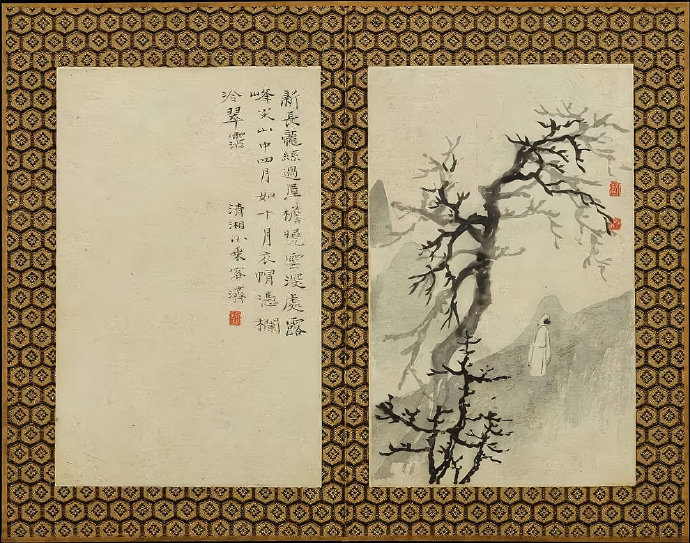 新長龍過屋檐曉雲深處露
峰尖山中四月如十月衣帽憑欄
冷翠霑
清湘小乘客濟